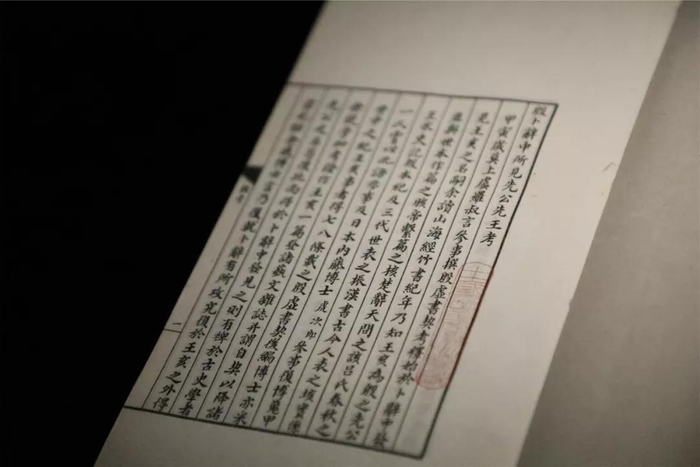 殷卜辭中所見先公先王考
甲寅歲莫上虞羅叔言參事撰殷虛書契考釋始於卜辭中發
見王亥之名嗣余讀山海經竹書紀年乃知王亥為殷之先公
並與世本作篇之胲帝繫篇之核楚辭天問之該呂氏春秋之
王冰史記殷本紀及三代世表之振漢書古今人表之垓實係
一人嘗以此語參事及日本內藤博士虎次郎參事復博蒐甲
骨中之紀王亥事者得七八條載之殷虛書契後編博士亦采
余說旁加考證作王亥一篇載諸藝文雜誌并謂自契以降諸
先公之名苟後此尚得於卜辭中發見之則有裨於古史學者
當尤鉅余感博士言乃復就卜辭有所攻究復於王亥之外得
一